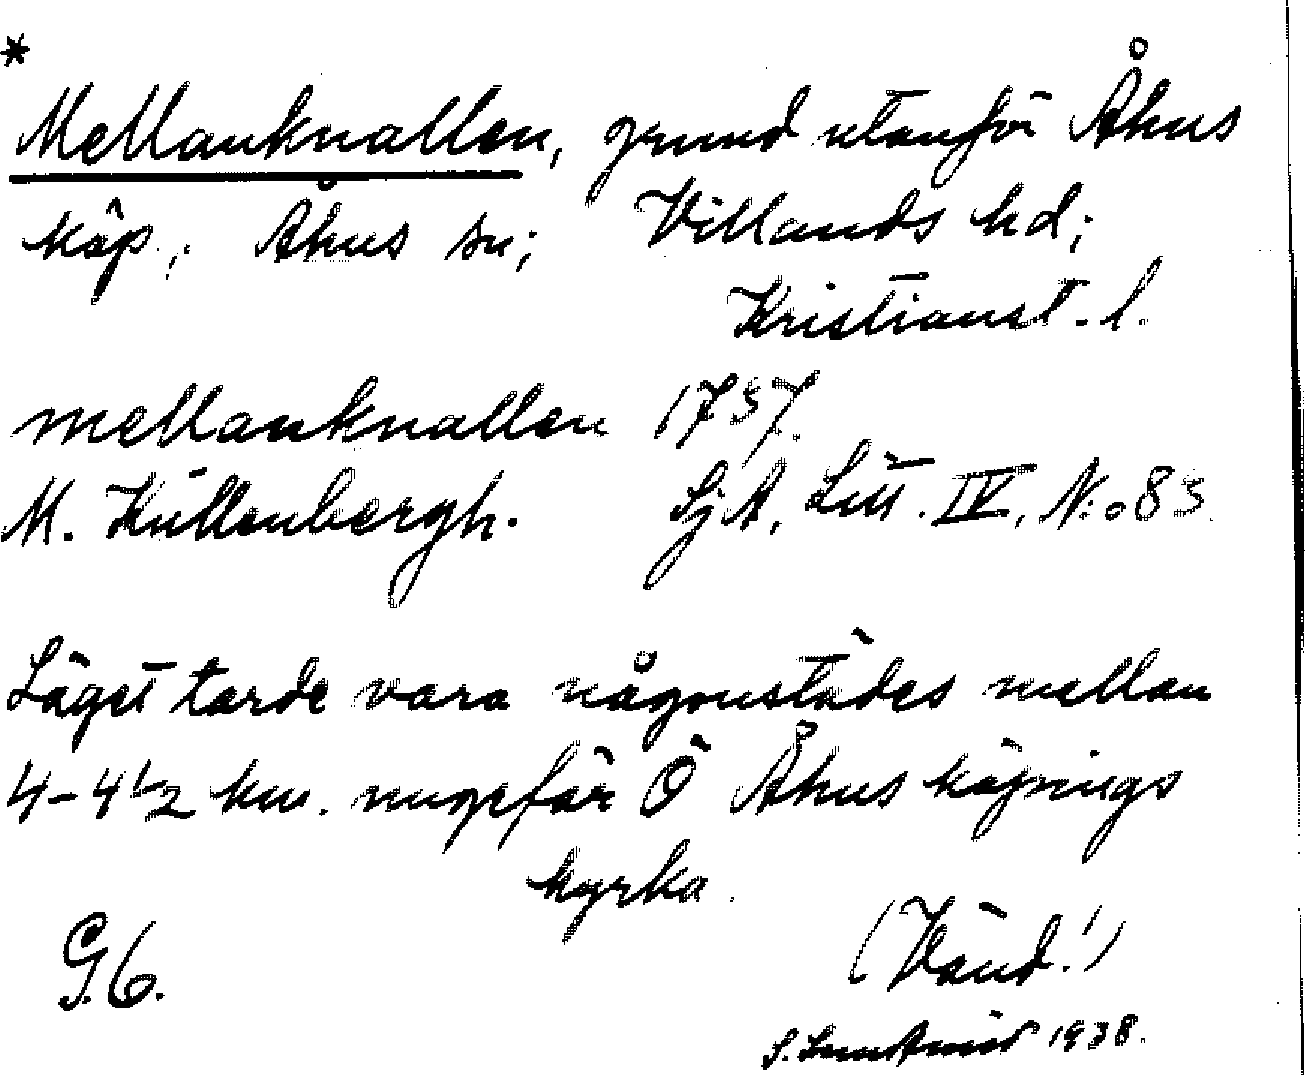 *
Mellanknallen, grund utanför Åhus
köp.; Åhus sn; Villands hd;
Kristianst. l.
mellanknallen 1757.
M. Kullenbergh. SjA, Litt. IV, N:o 83.
Läget torde vara någonstädes mellan
4-4 1/2 km. ungefär Ö Åhus köpings
kyrka.
G.6. (Vänd!)
S. 1938.